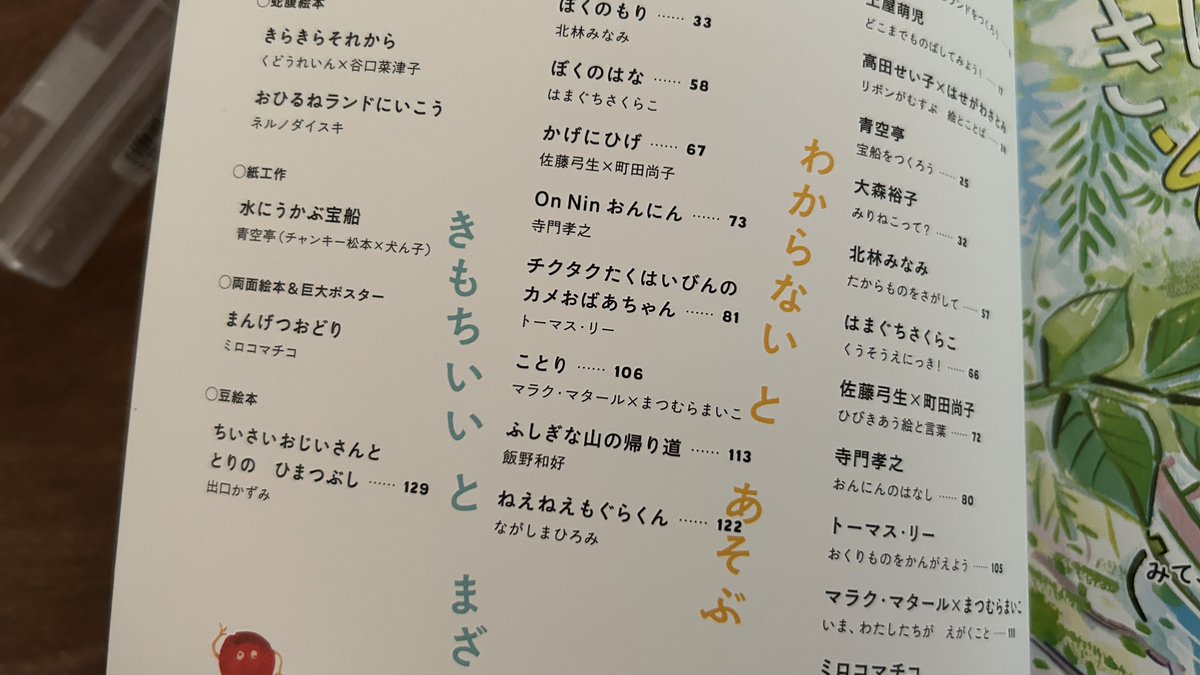 ○蛇腹絵本
きらきらそれから
くどうれいん×谷口菜津子
おひるねランドにいこう
ネルノダイスキ
○紙工作
水にうかぶ宝船
青空亭(チャンキー松本×犬ん子)
○両面絵本&巨大ポスター
まんげつおどり
ミロコマチコ
○豆絵本
ちいさいおじいさんと
とりの ひまつぶし …… 129
出口かずみ
きもちいいと まざ
ぼくのもり …… 33
北林みなみ
ぼくのはな …… 58
はまぐちさくらこ
かげにひげ …… 67
佐藤弓生×町田尚子
On Nin おんにん …… 73
寺門孝之
チクタクたくはいびんの
カメおばあちゃん …… 81
トーマス・リー
ことり …… 106
マラク・マタール×まつむらまいこ
ふしぎな山の帰り道 …… 113
飯野和好
ねえねえもぐらくん …… 122
ながしまひろみ
わからないと あそぶ
ランドをつくろう
土屋萌児
どこまでものばしてみよう! …… 17
高田せい子×はせがわさとみ
リボンがむすぶ 絵とことば ……
青空亭
宝船をつくろう …… 25
大森裕子
みりねこって? …… 32
北林みなみ
たからものをさがして …… 57
はまぐちさくらこ
くうそうえにっき! …… 66
佐藤弓生×町田尚子
ひびきあう絵と言葉 …… 72
寺門孝之
おんにんのはなし …… 80
トーマス・リー
おくりものをかんがえよう …… 105
マラク・マタール×まつむらまいこ
いま、わたしたちが えがくこと …… 111
ミロコマチコ
き
みて